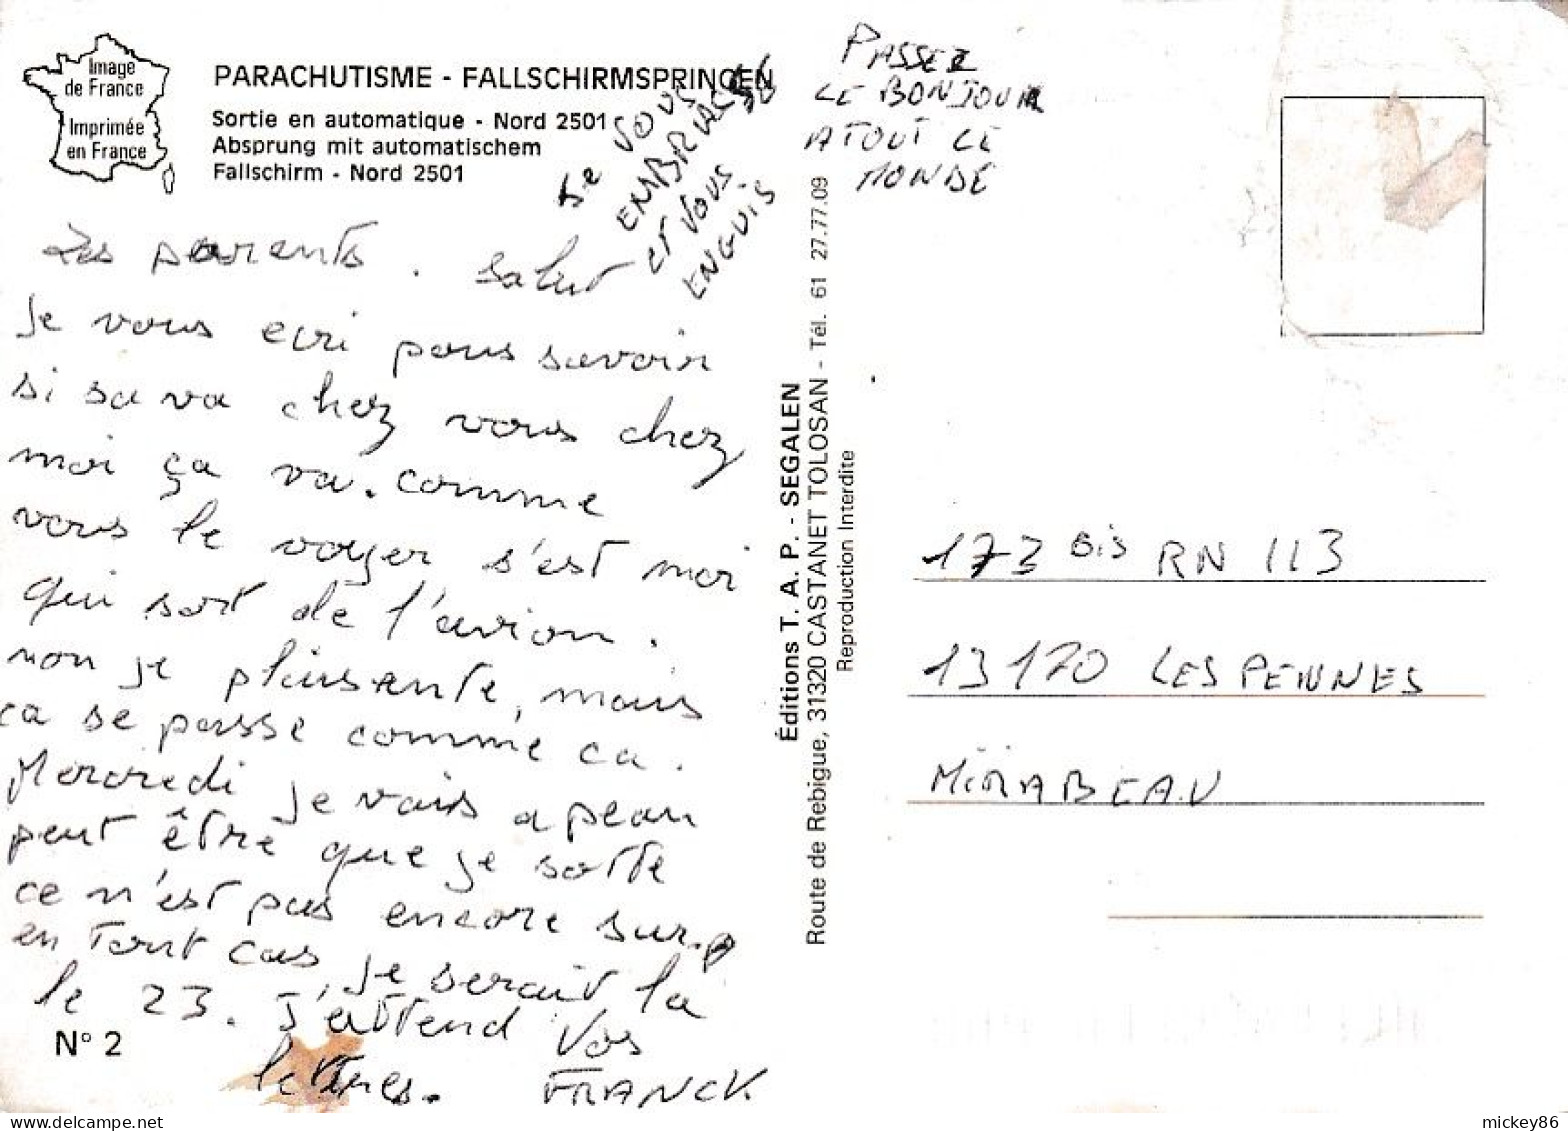 Image
de France
Imprimée
en France
PARACHUTISME - FALLSCHIRMSPRINGEN
Sortie en automatique - Nord 2501
Absprung mit automatischem
Fallschirm - Nord 2501
Les parents. Salut
Je vous ecri pour savoir
si sa va chez vous chez
moi ça va. comme
vous le voyer s'est moi
qui sort de l'avion.
non je plaisente, mais
ca se passe comme ca.
Mercredi je vais a peau
peut être que je sorte
ce n'est pas encore sur.
en tout cas, je serait la
le 23. J'attend vos
lettres. FRANCK
N° 2
Je VOUS
EMBRIASSE
et VOUS
ENGUIS
PASSER
LE BONJOUR
A TOUT LE
MONDE
Éditions T. A. P. - SEGALEN
Route de Rebigue, 31320 CASTANET TOLOSAN - Tél. 61 27.77.09
Reproduction Interdite
173 Bis RN 113
13170 LES PENNES
MIRABEAU
mickey86